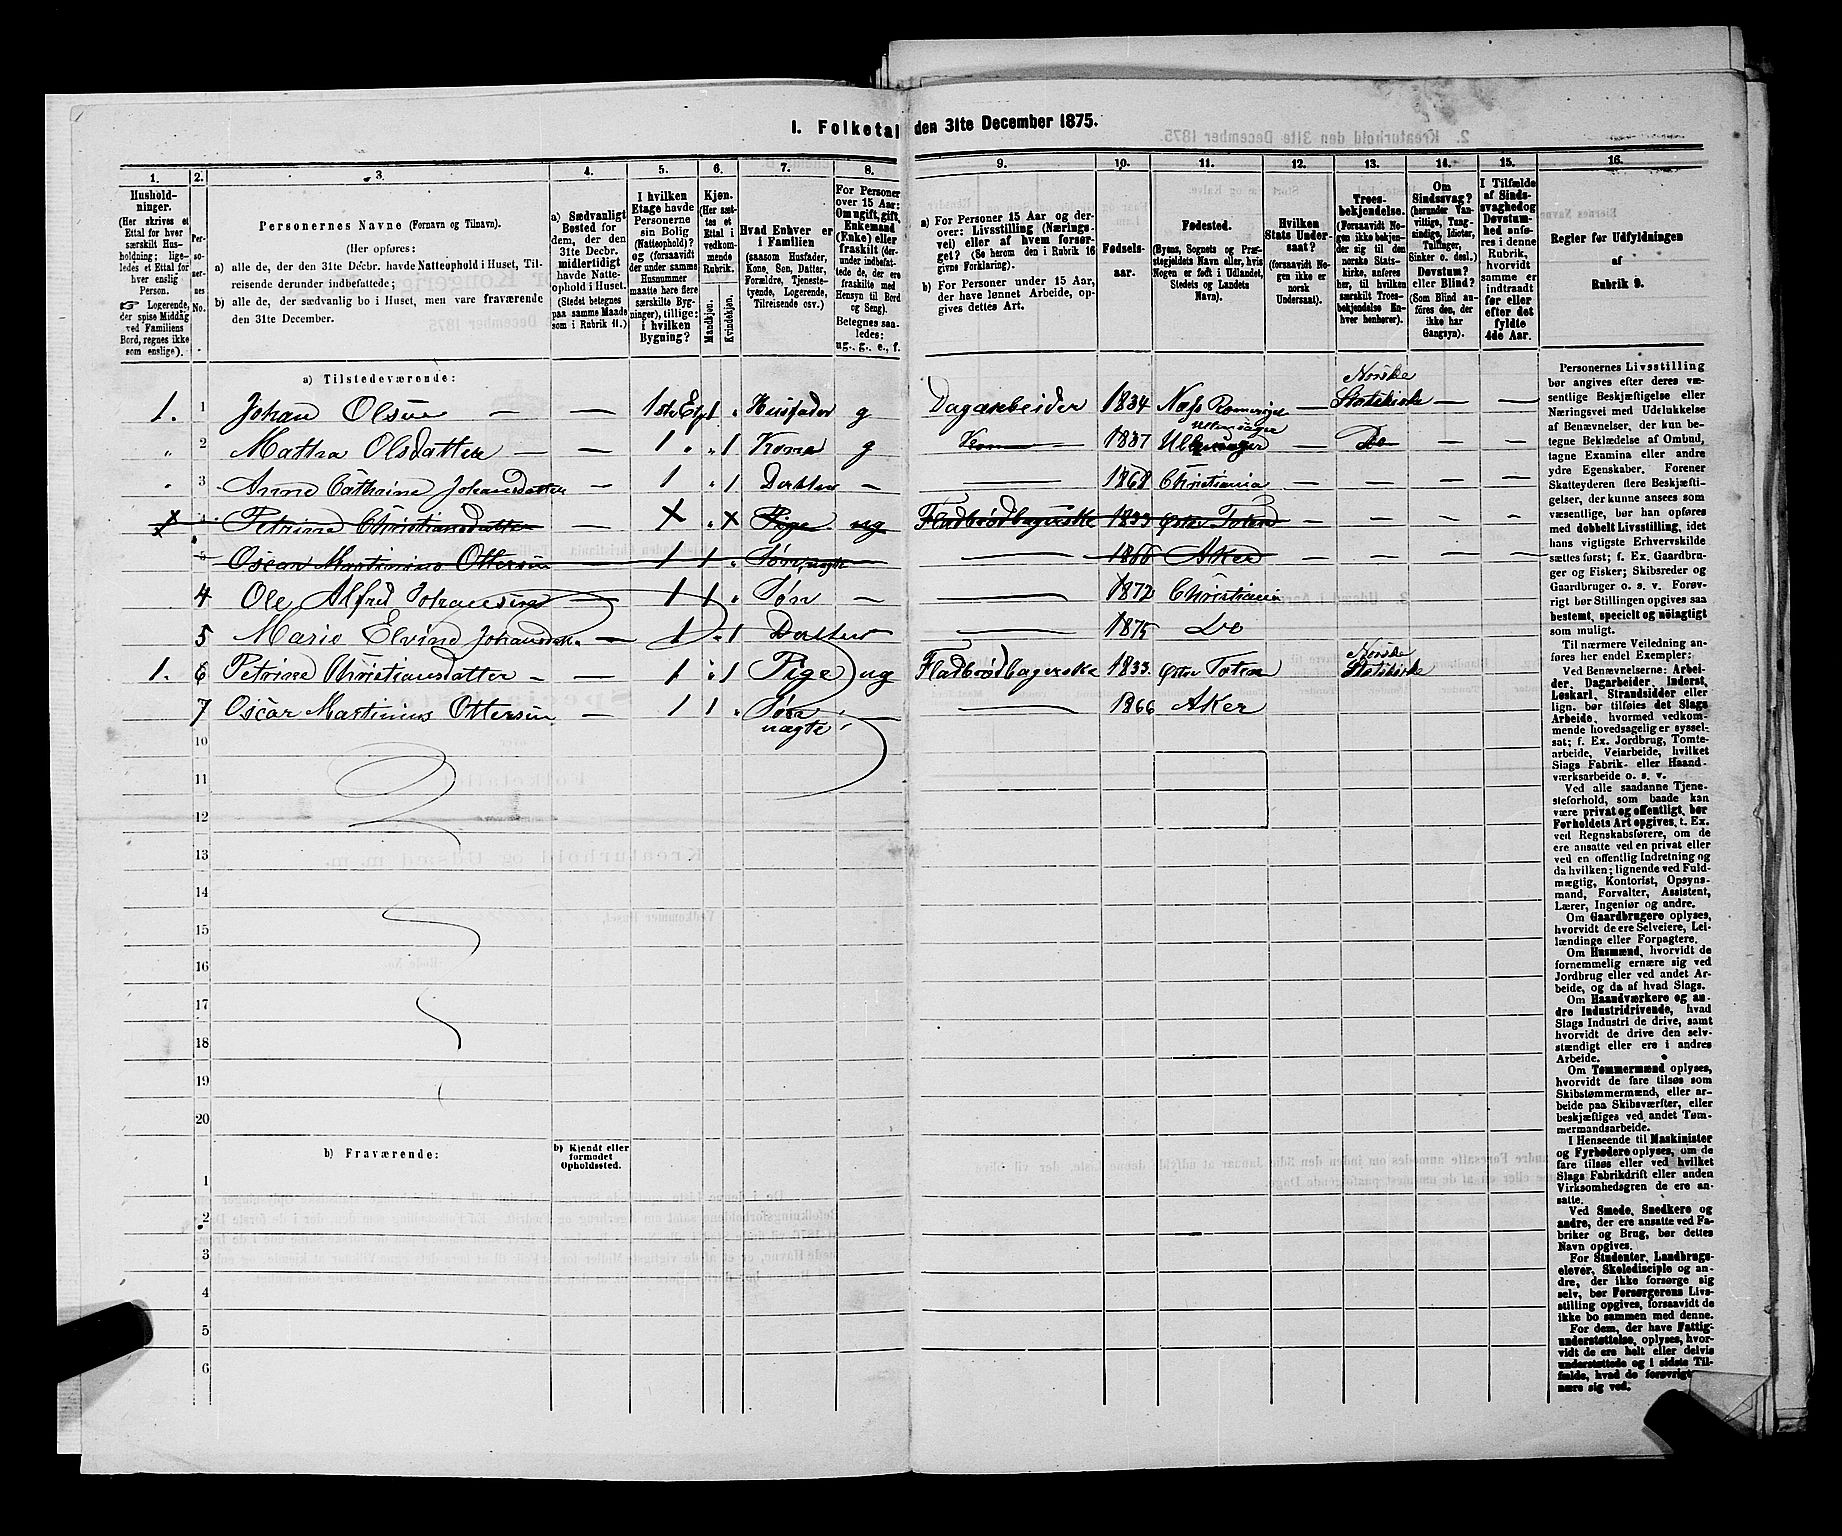 I. Folketal den 31te December 1875.
1. 2. 3. 4. 5. 6. 7. 8. 9. 10. 11. 12. 13. 14. 15. 16.
Husholdninger.
(Her skrives et
Ettal for hver
særskilt Husholdning;
ligeledes et Ettal for
hver enslig
Person.
☞ Logerende,
der spise Middag
ved Familiens
Bord, regnes ikke
som enslige).
Personernes No.
Personernes Navne (Fornavn og Tilnavn).
(Her opføres:
a) alle de, der den 31te Decbr. havde Natteophold i Huset, Tilreisende
derunder indbefattede;
b) alle de, der sædvanlig bo i Huset, men vare fraværende
den 31te December.
a) Sædvanligt
Bosted for
dem, der den
31te Decbr.
midlertidigt
havde Natteophold
i Huset.
(Stedet betegnes
paa samme Maade
som i Rubrik 11.)
I hvilken
Etage havde
Personerne
sin Bolig
(Natteophold)?
og (forsaavidt
der under samme
Husnummer
maatte høre flere
særskilte Bygninger),
tillige:
i hvilken
Bygning?
Kjøn.
(Her sættes
et
Ettal i
vedkommende
Rubrik.
Mandkjøn. Kvindekjøn.
Hvad Enhver er
i Familien
(saasom Husfader,
Kone, Søn, Datter,
Forældre, Tjenestetyende,
Logerende,
Tilreisende osv.)
For Personer
over 15 Aar:
Om ugift, gift,
Enkemand
(Enke) eller
fraskilt (derunder
indbefattede
de, der ere
fraskilte med
Hensyn til Bord
og Seng).
Betegnes saaledes:
ug., g., e., f.
a) For Personer 15 Aar og derover:
Livsstilling (Næringsvei)
eller af hvem forsørget?
(Se herom den i Rubrik 16
givne Forklaring).
b) For Personer under 15 Aar,
der have lønnet Arbeide, opgives
dettes Art.
Fødselsaar.
Fødested.
(Byens, Sognets og Præstegjeldets
Navn eller, hvis
Nogen er født i Udlandet,
Stedets og Landets
Navn).
Hvilken
Stats Undersaat?
(forsaavidt Nogen
ikke er
norsk
Undersaat).
Troesbekjendelse.
(Forsaavidt Nogen
ikke bekjender
sig til den
norske Statskirke,
anføres
her, til hvilken
særskilt Troesbekjendelse
Enhver
henhører).
Om
Sindssvag?
(herunder Vanvittige,
Tungsindige,
Idioter,
Tullinger,
Sinker o. desl.)
Døvstum?
eller Blind?
(Som Blind anføres
den, der
ikke har
Gangsyn).
I Tilfælde
af Sindssvaghed
og
Døvstumhed
anføres
i denne
Rubrik,
hvorvidt
samme er
indtraadt
før eller
efter det
fyldte
4de Aar.
Regler før Udfyldningen
af
Rubrik 9.
a) Tilstedeværende:
1. 1 Johan Olsen — — 1ste Etg 1 „ Husfader g Dagarbeider 1834 Næs Romerige — Norske Statskirke — —
„ 2 Mathea Olsdatter — — 1 „ „ 1 Kone g Kone 1837 Ullensager Ullensager — Do — —
„ 3 Anne Cathrine Johansdatter — 1 „ 1 Datter — — 1868 Christiania — — —
4 Petrine Christiansdatter — X „ X Pige ug Fladbrødbagerske 1833 Østre Toten — — —
5 Oscar Martinius Ottersen — 1 1 „ Søn, uægte — — 1866 Aker — — —
4 Ole Alfred Johansen — 1 1 „ Søn — — 1872 Christiania
5 Marie Elvine Johansdatter — 1 „ 1 Datter — 1875 Do
1. 6 Petrine Christiansdatter — — 1 „ 1 Pige ug Fladbrødbagerske 1833 Østre Toten Norske Statskirke
7 Oscar Martinius Ottersen — 1 1 „ Søn uægte — — 1866 Aker
10
11
12
13
14
15
16
17
18
19
20
b) Fraværende:
b) Kjendt eller
formodet
Opholdssted.
1
2
3
4
5
6
Personernes Livsstilling
bør angives efter deres væsentlige
Beskjæftigelse eller
Næringsvei med Udelukkelse
af Benævnelser, der kun betegne
Beklædelse af Ombud,
tagne Examina eller andre
ydre Egenskaber. Forener
Skatteyderen flere Beskjæftigelser,
der kunne ansees som
væsentlige, bør han opføres
med dobbelt Livsstilling, idet
hans vigtigste Erhvervskilde
sættes først; f. Ex. Gaardbruger
og Fisker; Skibsreder og
Gaardbruger o. s. v. Forøvrigt
bør Stillingen opgives saa
bestemt, specielt og nøiagtigt
som muligt.
Til nærmere Veiledning anføres
her endel Exempler:
Ved Benævnelserne: Arbeider,
Dagarbeider, Inderst,
Løskarl, Strandsidder eller
lign. bør tilføies det Slags
Arbeide, hvormed vedkommende
hovedsagelig er sysselsat;
f. Ex. Jordbrug, Tomtearbeide,
Veiarbeide, hvilket
Slags Fabrik- eller Haandværksarbeide
o. s. v.
Ved alle saadanne Tjenesteforhold,
som baade kan
være privat og offentligt, bør
Forholdets Art opgives, t. Ex.
ved Regnskabsførere, om de
ere ansatte ved en privat eller
ved en offentlig Indretning og
da hvilken; lignende ved Fuldmægtig,
Kontorist, Opsynsmand,
Forvalter, Assistent,
Lærer, Ingeniør og andre.
Om Gaardbrugere oplyses,
hvorvidt de ere Selveiere, Leilændinge
eller Forpagtere.
Om Husmænd, hvorvidt de
fornemmelig ernære sig ved
Jordbrug eller ved andet Arbeide,
og da af hvad Slags.
Om Haandværkere og andre
industridrivende, hvad
Slags Industri de drive, samt
hvorvidt de drive den selvstændigt
eller ere i andres
Arbeide.
Om Tømmermænd oplyses,
hvorvidt de fare tilsøs som
Skibstømmermænd, eller arbeide
paa Skibsværfter, eller
beskjæftiges ved andet Tømmermandsarbeide.
I Henseende til Maskinister
og Fyrbødere oplyses, om de
fare tilsøs eller ved hvilket
Slags Fabrikdrift eller anden
Virksomhedsgren de ere ansatte.
Ved Smede, Snedkere og
andre, der ere ansatte ved Fabriker
og Brug, bør dettes
Navn opgives.
For Studenter, Landbrugselever,
Skoledisciple og andre,
der ikke forsørge sig
selv, bør Forsørgerens Livsstilling
opgives, forsaavidt de
ikke bo sammen med denne.
For dem, der have Fattigunderstøttelse,
oplyses, hvorvidt
de ere helt eller delvis
understøttede og i sidste Tilfælde,
hvad de forøvrigt
nære sig ved.